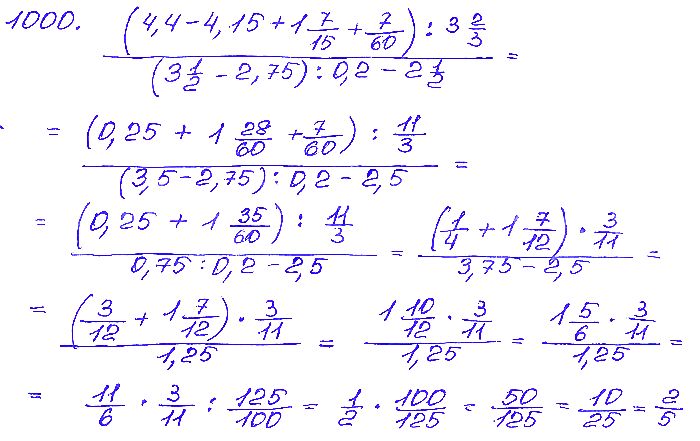 1000. ((4,4 − 4,15 + 1 7/15 + 7/60) : 3 2/3) / ((3 1/2 − 2,75) : 0,2 − 2 1/2) =
= ((0,25 + 1 28/60 + 7/60) : 11/3) / ((3,5 − 2,75) : 0,2 − 2,5) =
= ((0,25 + 1 35/60) : 11/3) / (0,75 : 0,2 − 2,5) = ((1/4 + 1 7/12) · 3/11) / (3,75 − 2,5) =
= ((3/12 + 1 7/12) · 3/11) / 1,25 = (1 10/12 · 3/11) / 1,25 = (1 5/6 · 3/11) / 1,25 =
= 11/6 · 3/11 : 125/100 = 1/2 · 100/125 = 50/125 = 10/25 = 2/5